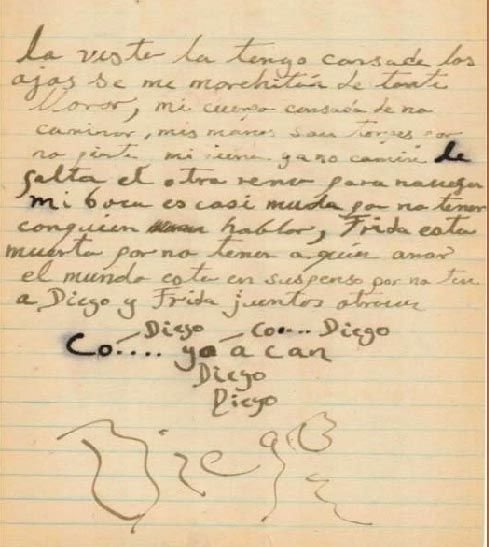 la vista la tengo cansada los
ojos se me marchitán de tanto
llorar, mi cuerpo cansado de no
caminar, mis manos son torpes por
no pinta mi ya no camina de
falta el otro remo para navegar
mi boca es casi muda por no tener
conquien hablar, Frida esta
muerta por no tener a quien amar
el mundo esta en suspenso por no
a Diego y Frida juntos
Diego Co.... Diego
Co.... ya á can
Diego
Diego
Diego